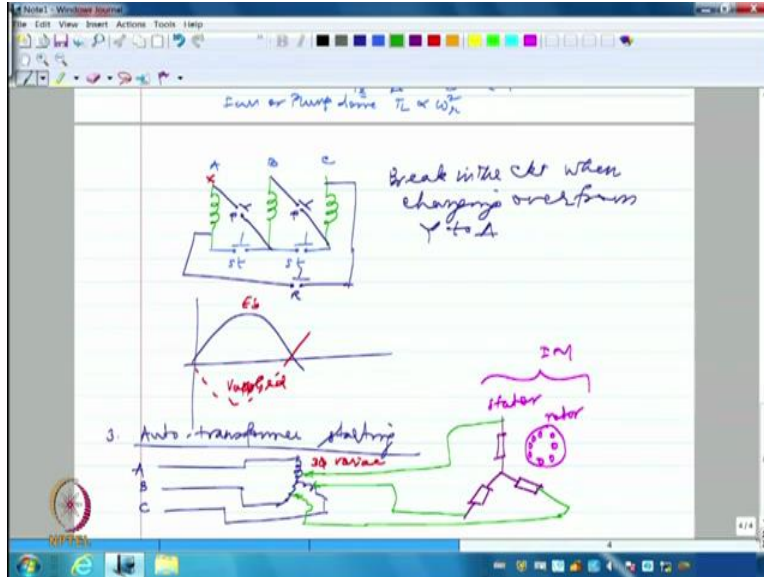 Note1 - Windows Journal
File Edit View Insert Actions Tools Help
Fan or Pump drive TL ∝ ωr²
A B C
Break in the ckt when
changing over from
Y to Δ
St St
R
Eb
Vapplied
IM
stator
rotor
3. Auto-transformer starting
3ϕ variac
A
B
C
NPTEL
4
4/4